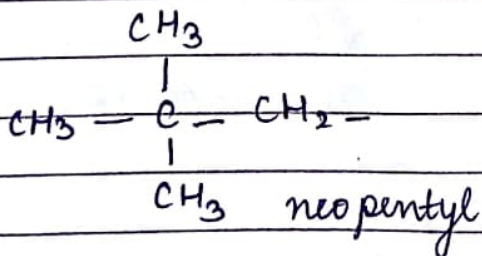 CH3
|
CH3 — C — CH2 —
|
CH3 neopentyl